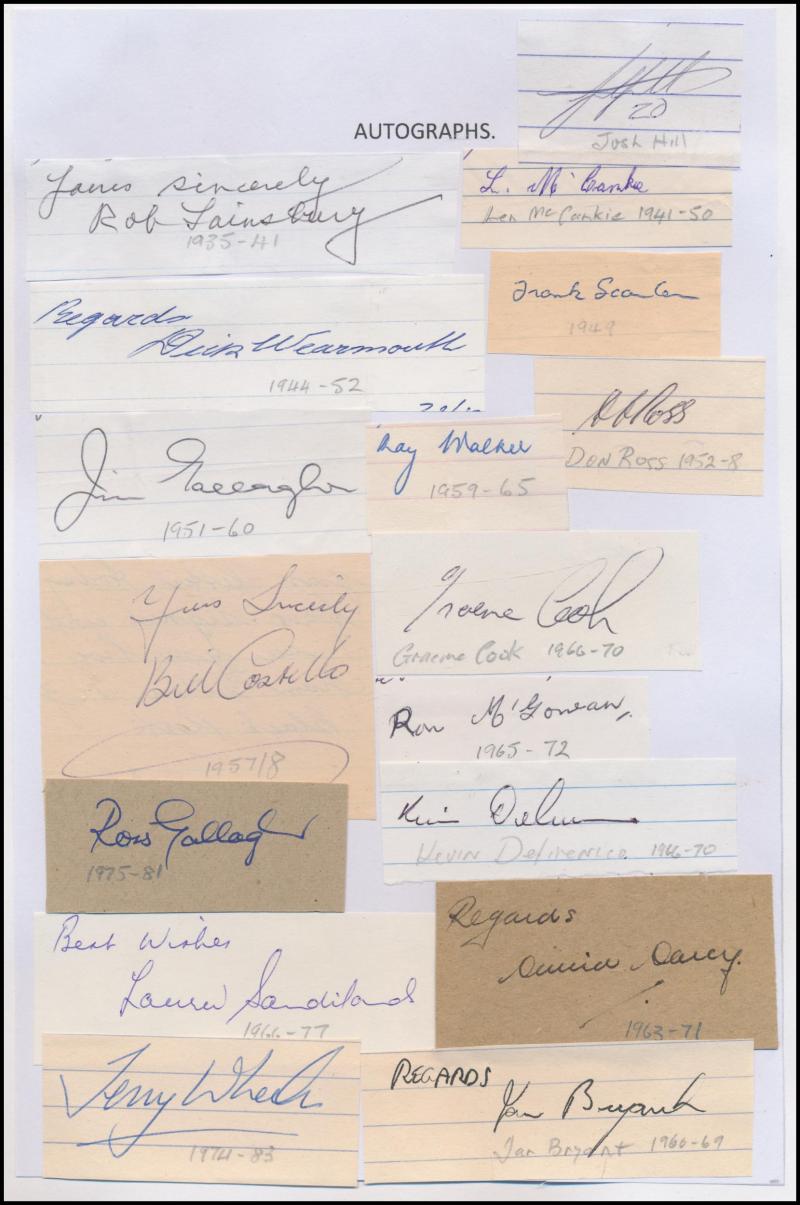 AUTOGRAPHS.
20
Josh Hill
Yours sincerely
Rob Sainsbury
1935-41
L. McCankie
Len McCankie 1941-50
Regards
Dick Wearmouth
1944-52
Frank Scanlan
1949
D Ross
Don Ross 1952-8
Jim Gallagher
1951-60
Ray Walker
1959-65
Yours Sincerely
Bill Costello
1957/8
Graeme Cook
Graeme Cook 1966-70
Ron McGowan
1965-72
Ross Gallagher
1975-81
Kevin
Kevin Delmenico 1966-70
Best Wishes
Laurie Sandilands
1966-77
Regards
Darcy.
1963-71
Terry Wheeler
1974-83
REGARDS
Ian Bryant
Ian Bryant 1960-69